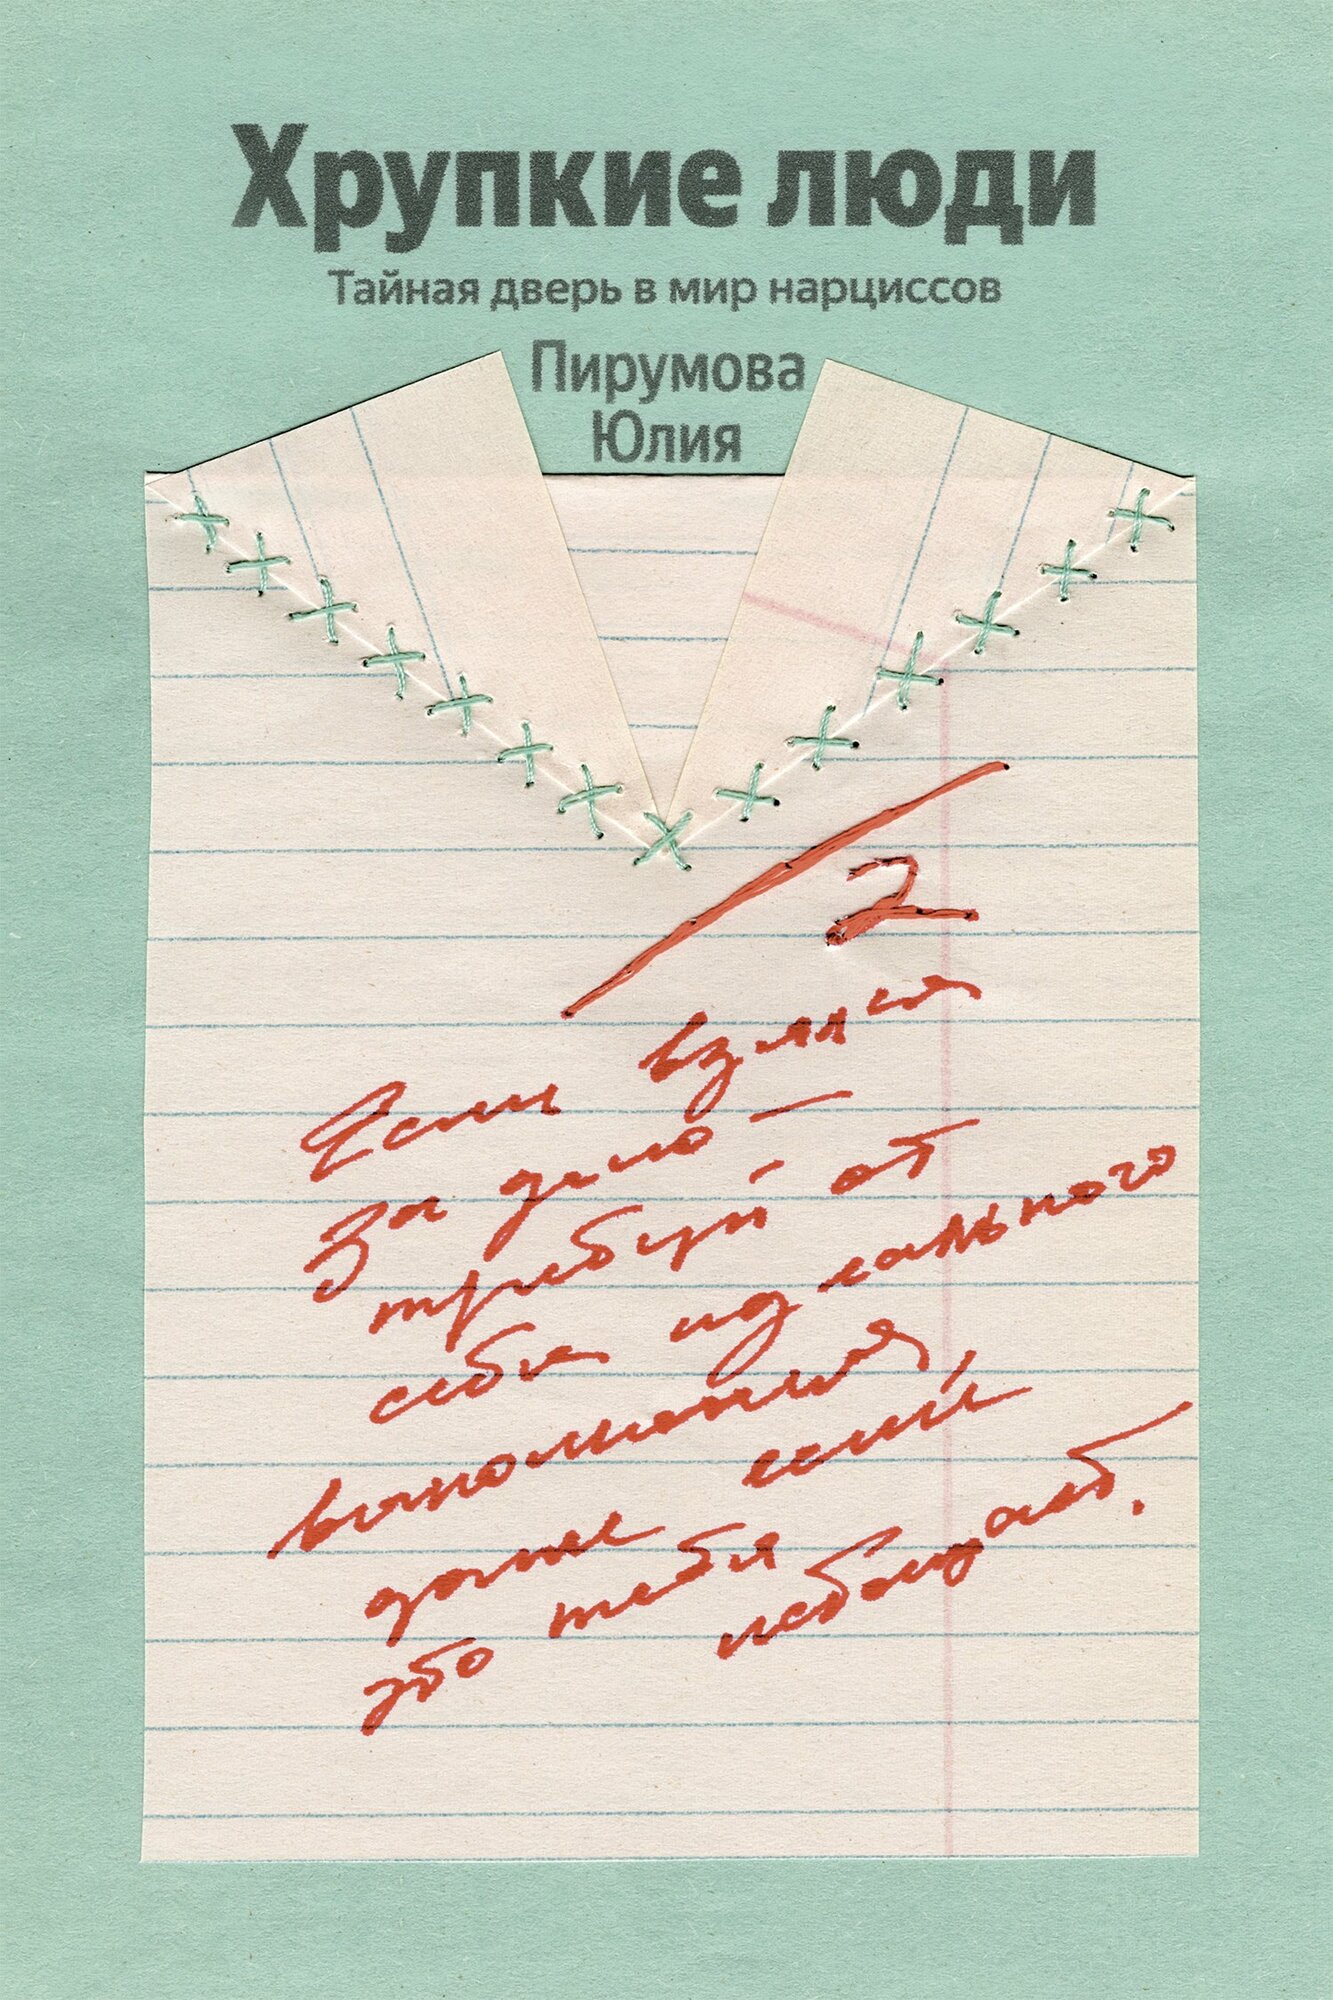 Хрупкие люди
Тайная дверь в мир нарциссов
Пирумова
Юлия
2
Если взялся
за дело —
требуй от
себя идеального
выполнения,
даже если
это тебя
не бодает.